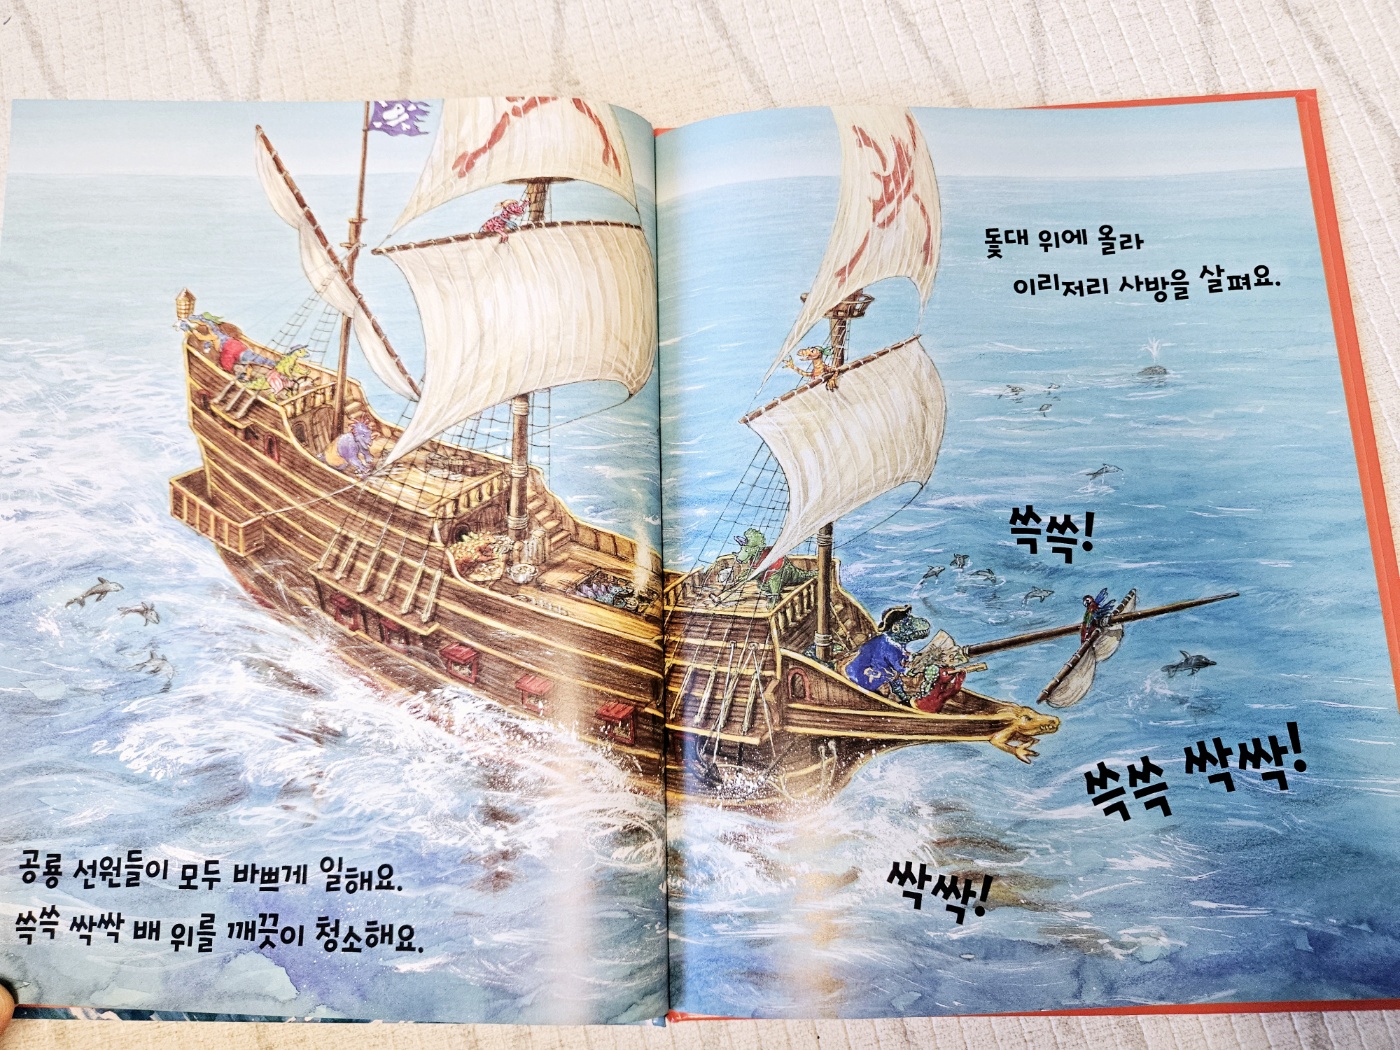 공룡 선원들이 모두 바쁘게 일해요.
쓱쓱 싹싹 배 위를 깨끗이 청소해요.
돛대 위에 올라
이리저리 사방을 살펴요.
쓱쓱!
쓱쓱 싹싹!
싹싹!